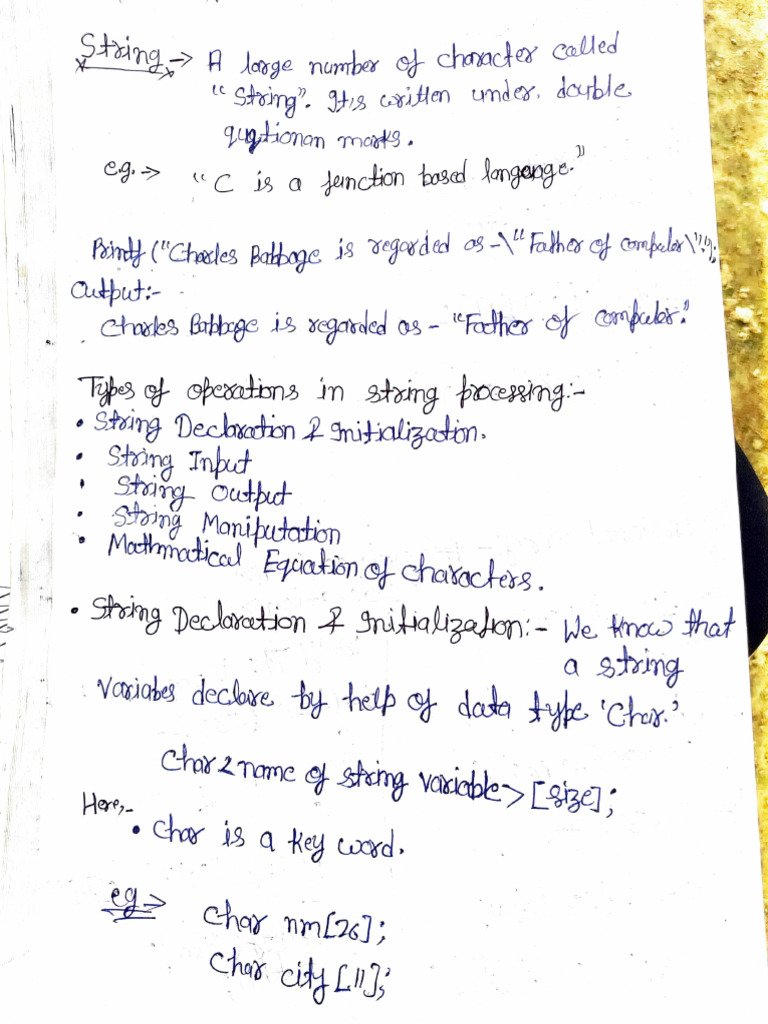 String → A large number of character called
"String". It is written under. double
quqtionan marks.
e.g. → "C is a function based langauge."
Printf ("Charles Babbage is regarded as -\"Father of computer\".");
Output:-
Charles Babbage is regarded as - "Father of computer."
Types of operations in string processing:-
• String Declaration & Initialization.
• String Input
• String Output
• String Maniputation
• Mathmatical Equation of characters.
• String Declaration & Initialization:- We know that
a string
Variabes declare by help of data type 'Char.'
Char <name of string variable> [size];
Here,-
• Char is a key word.
eg →
Char nm[26];
Char city [11];